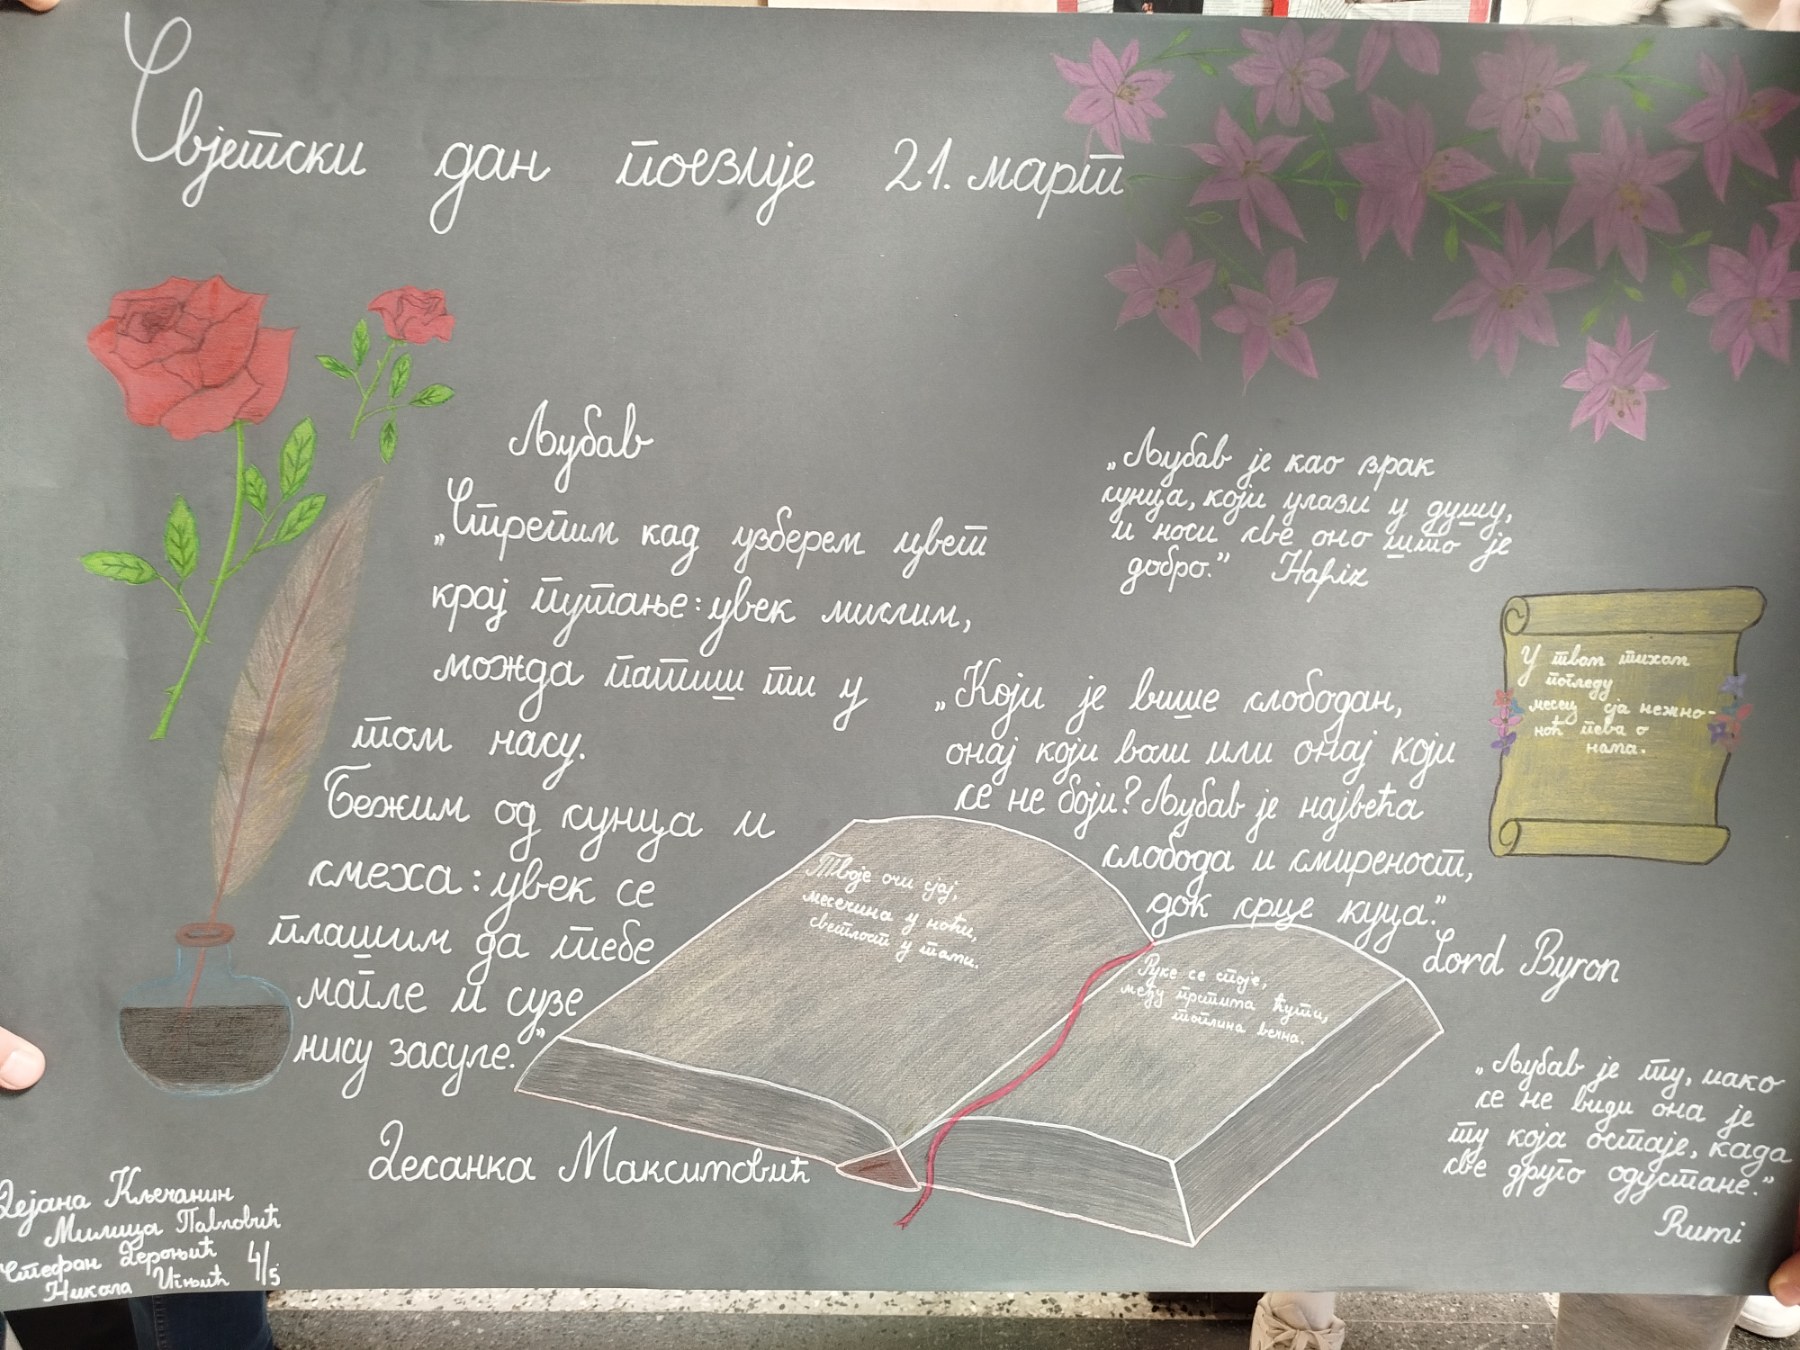 Свјетски дан поезије 21. март
Љубав
„Стрепим кад узберем цвет
крај путање: увек мислим,
можда патиш ти у
том часу.
Бежим од сунца и
смеха: увек се
плашим да тебе
магле и сузе
нису засуле.”
Десанка Максимовић
„Љубав је као зрак
сунца, који улази у душу,
и носи све оно што је
добро.” Hafiz
„Који је више слободан,
онај који воли или онај који
се не боји? Љубав је највећа
слобода и смиреност,
док срце куца.”
Lord Byron
У твом тихом
погледу
месец сја нежно-
ноћ пева о
нама.
Твоје очи сјај,
месечина у ноћи,
светлост у тами.
Руке се споје,
међу прстима ћути,
топлина вечна.
„Љубав је ту, иако
се не види она је
ту која остаје, када
све друго одустане.”
Rumi
Дејана Кљечанин
Милица Павловић
Стефан Дероњић 4/5
Никола